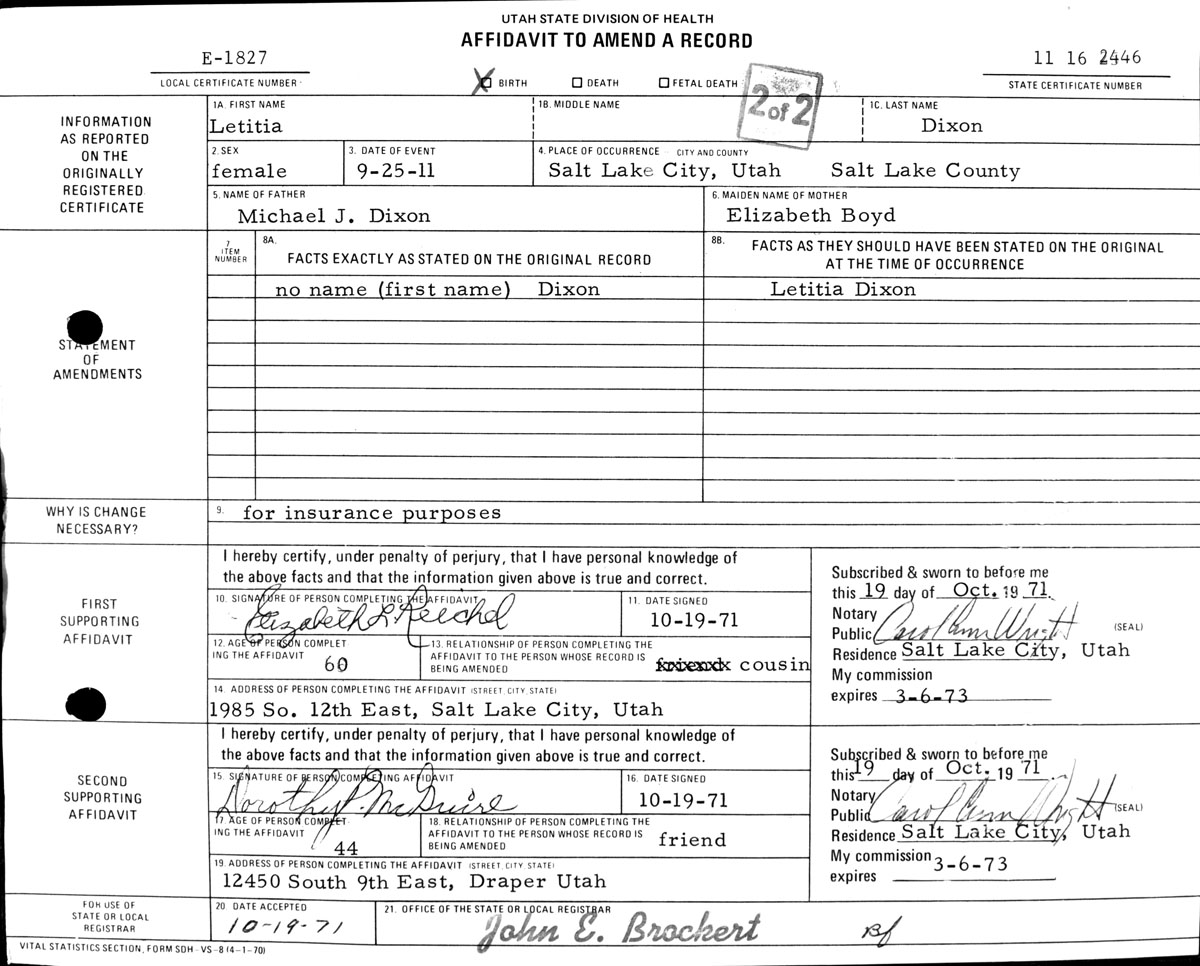 UTAH STATE DIVISION OF HEALTH
AFFIDAVIT TO AMEND A RECORD
E-1827
LOCAL CERTIFICATE NUMBER
X BIRTH DEATH FETAL DEATH
2 of 2
11 16 2446
STATE CERTIFICATE NUMBER
INFORMATION
AS REPORTED
ON THE
ORIGINALLY
REGISTERED
CERTIFICATE
1A. FIRST NAME 1B. MIDDLE NAME 1C. LAST NAME
Letitia Dixon
2. SEX 3. DATE OF EVENT 4. PLACE OF OCCURRENCE - CITY AND COUNTY
female 9-25-11 Salt Lake City, Utah Salt Lake County
5. NAME OF FATHER 6. MAIDEN NAME OF MOTHER
Michael J. Dixon Elizabeth Boyd
STATEMENT
OF
AMENDMENTS
7
ITEM
NUMBER
8A.
FACTS EXACTLY AS STATED ON THE ORIGINAL RECORD
8B. FACTS AS THEY SHOULD HAVE BEEN STATED ON THE ORIGINAL
AT THE TIME OF OCCURRENCE
no name (first name) Dixon Letitia Dixon
WHY IS CHANGE
NECESSARY?
9. for insurance purposes
FIRST
SUPPORTING
AFFIDAVIT
I hereby certify, under penalty of perjury, that I have personal knowledge of
the above facts and that the information given above is true and correct.
10. SIGNATURE OF PERSON COMPLETING THE AFFIDAVIT 11. DATE SIGNED
Elizabeth L. Reichel 10-19-71
12. AGE OF PERSON COMPLET
ING THE AFFIDAVIT 60
13. RELATIONSHIP OF PERSON COMPLETING THE
AFFIDAVIT TO THE PERSON WHOSE RECORD IS
BEING AMENDED cousin
14. ADDRESS OF PERSON COMPLETING THE AFFIDAVIT (STREET, CITY, STATE)
1985 So. 12th East, Salt Lake City, Utah
Subscribed & sworn to before me
this 19 day of Oct. 19 71
Notary
Public Carol Ann Wright (SEAL)
Residence Salt Lake City, Utah
My commission
expires 3-6-73
SECOND
SUPPORTING
AFFIDAVIT
I hereby certify, under penalty of perjury, that I have personal knowledge of
the above facts and that the information given above is true and correct.
15. SIGNATURE OF PERSON COMPLETING AFFIDAVIT 16. DATE SIGNED
Dorothy P. McGuire 10-19-71
17. AGE OF PERSON COMPLET
ING THE AFFIDAVIT 44
18. RELATIONSHIP OF PERSON COMPLETING THE
AFFIDAVIT TO THE PERSON WHOSE RECORD IS
BEING AMENDED friend
19. ADDRESS OF PERSON COMPLETING THE AFFIDAVIT (STREET, CITY, STATE)
12450 South 9th East, Draper Utah
Subscribed & sworn to before me
this 19 day of Oct. 19 71
Notary
Public Carol Ann Wright (SEAL)
Residence Salt Lake City, Utah
My commission
expires 3-6-73
FOR USE OF
STATE OR LOCAL
REGISTRAR
20. DATE ACCEPTED 21. OFFICE OF THE STATE OR LOCAL REGISTRAR
10-19-71 John E. Brockert
VITAL STATISTICS SECTION, FORM SDH - VS - 8 (4-1-70)